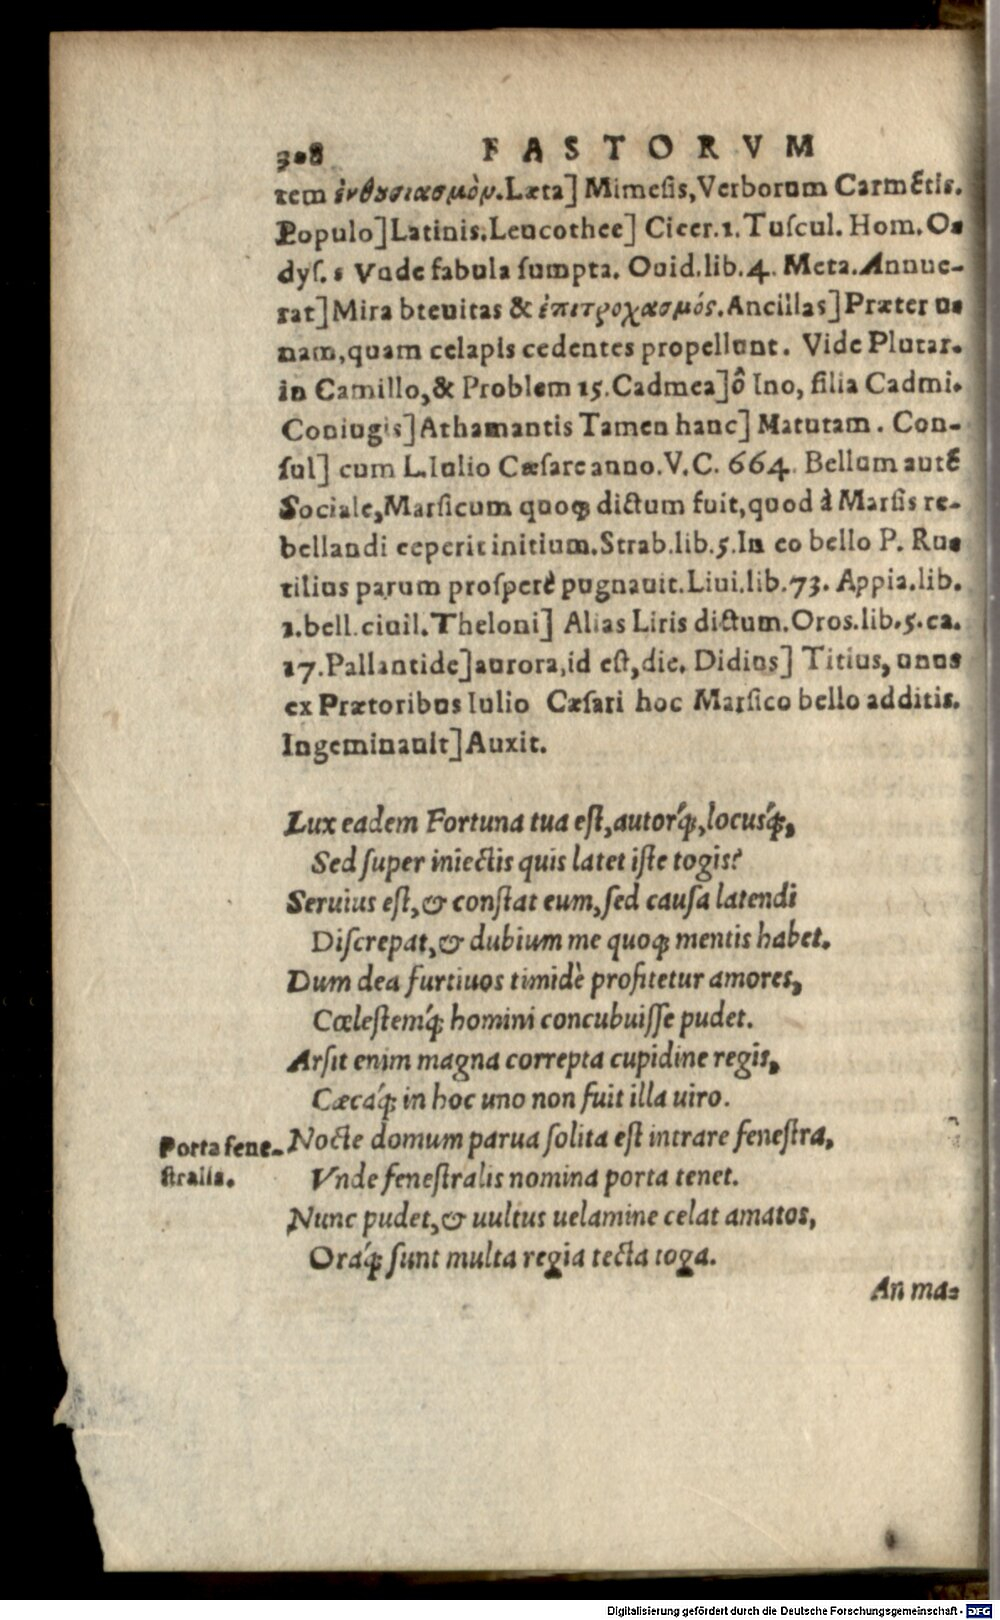 308 FASTORVM
tem ἐνθουσιασμὸν. Læta] Mimesis, Verborum Carmētis.
Populo] Latinis. Leucothee] Cicer. 1. Tuscul. Hom. O-
dys. 5 Vnde fabula sumpta. Ouid. lib. 4. Meta. Annue-
rat] Mira breuitas & ἐπιτροχασμός. Ancillas] Præter u-
nam, quam celapis cedentes propellunt. Vide Plutar.
in Camillo, & Problem 15. Cadmea] ô Ino, filia Cadmi.
Coniugis] Athamantis Tamen hanc] Matutam. Con-
sul] cum L. Iulio Cæsare anno. V.C. 664. Bellum autē
Sociale, Marsicum quoq; dictum fuit, quod à Marsis re-
bellandi ceperit initium. Strab. lib. 5. In eo bello P. Ru-
tilius parum prosperè pugnauit. Liui. lib. 73. Appia. lib.
1. bell. ciuil. Theloni] Alias Liris dictum. Oros. lib. 5. ca.
17. Pallantide] aurora, id est, die. Didius] Titius, unus
ex Prætoribus Iulio Cæsari hoc Marsico bello additis.
Ingeminauit] Auxit.
Lux eadem Fortuna tua est, autorq́;, locusq́;,
Sed super iniectis quis latet iste togis?
Seruius est, & constat eum, sed causa latendi
Discrepat, & dubium me quoq; mentis habet.
Dum dea furtiuos timidè profitetur amores,
Cœlestemq́; homini concubuisse pudet.
Arsit enim magna correpta cupidine regis,
Cæcaq́; in hoc uno non fuit illa uiro.
Nocte domum parua solita est intrare fenestra,
Porta fene-
stralis.
Vnde fenestralis nomina porta tenet.
Nunc pudet, & uultus uelamine celat amatos,
Oraq́; sunt multa regia tecta toga.
An ma-
Digitalisierung gefördert durch die Deutsche Forschungsgemeinschaft - DFG